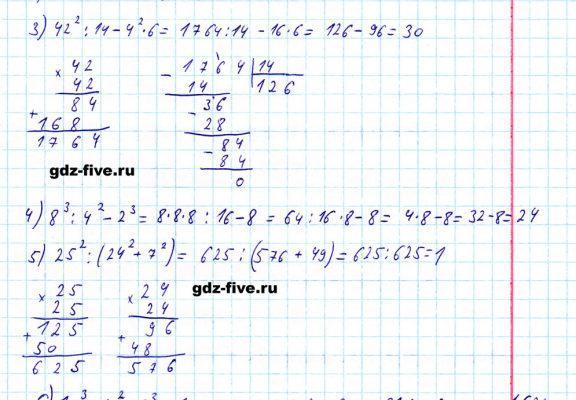 3) 42² : 14 - 4² · 6 = 1764 : 14 - 16 · 6 = 126 - 96 = 30
× 42
42
84
+ 168
1764
- 1764 | 14
14 126
36
- 28
84
- 84
0
gdz-five.ru
4) 8³ : 4² - 2³ = 8·8·8 : 16 - 8 = 64 : 16 · 8 - 8 = 4·8 - 8 = 32 - 8 = 24
5) 25² : (24² + 7²) = 625 : (576 + 49) = 625 : 625 = 1
gdz-five.ru
× 25
25
+ 125
50
625
× 24
24
+ 96
48
576